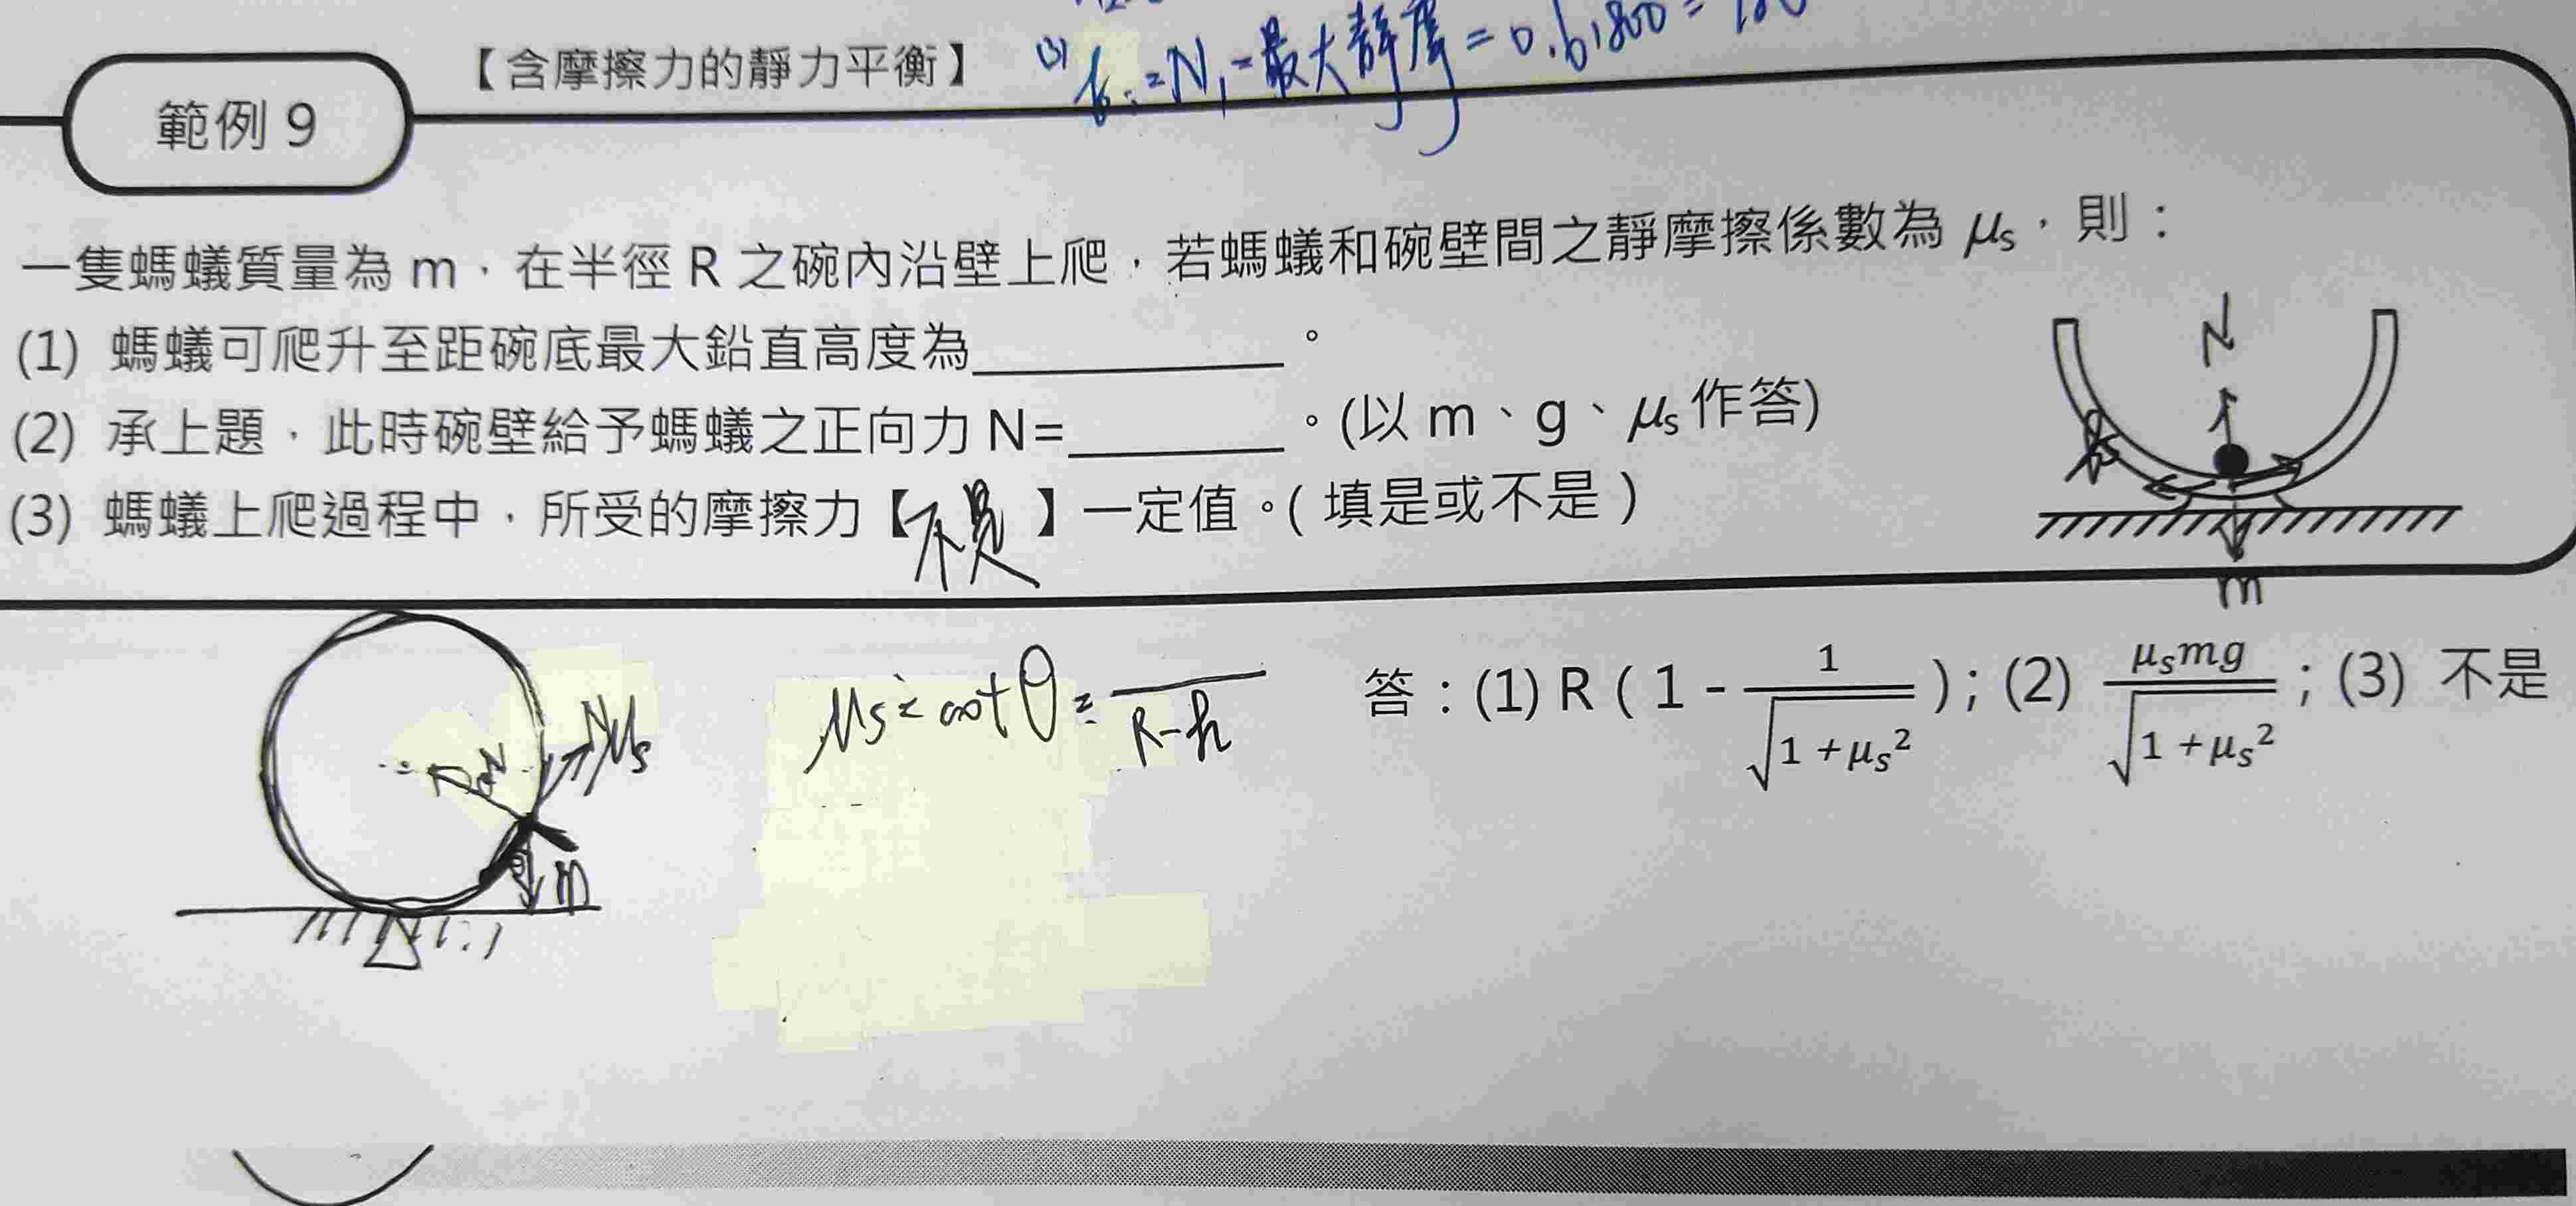 (3) f₁ = N₁ = 最大靜摩 = 0.6 1800 =
【含摩擦力的靜力平衡】
範例 9
一隻螞蟻質量為 m，在半徑 R 之碗內沿壁上爬，若螞蟻和碗壁間之靜摩擦係數為 μs，則：
(1) 螞蟻可爬升至距碗底最大鉛直高度為__________。
(2) 承上題，此時碗壁給予螞蟻之正向力 N=_______。(以 m、g、μs 作答)
(3) 螞蟻上爬過程中，所受的摩擦力【不是】一定值。( 填是或不是 )
N
m
μs = cot θ = ── / R-h
答：(1) R ( 1 - 1/√(1 + μs²) ) ; (2) μsmg/√(1 + μs²) ; (3) 不是
N
Nμs
m